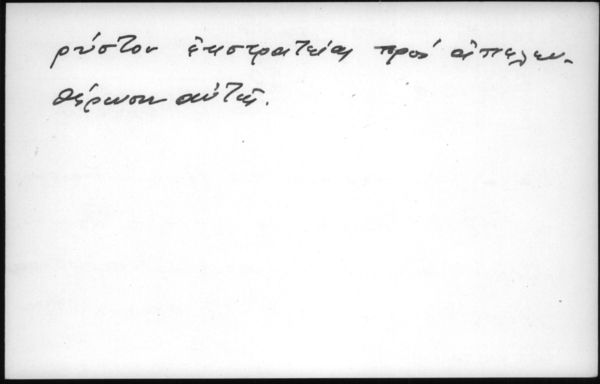 ρύστου ἐκστρατείαν πρὸς ἀπελευ-
θέρωσιν αὐτῆς.